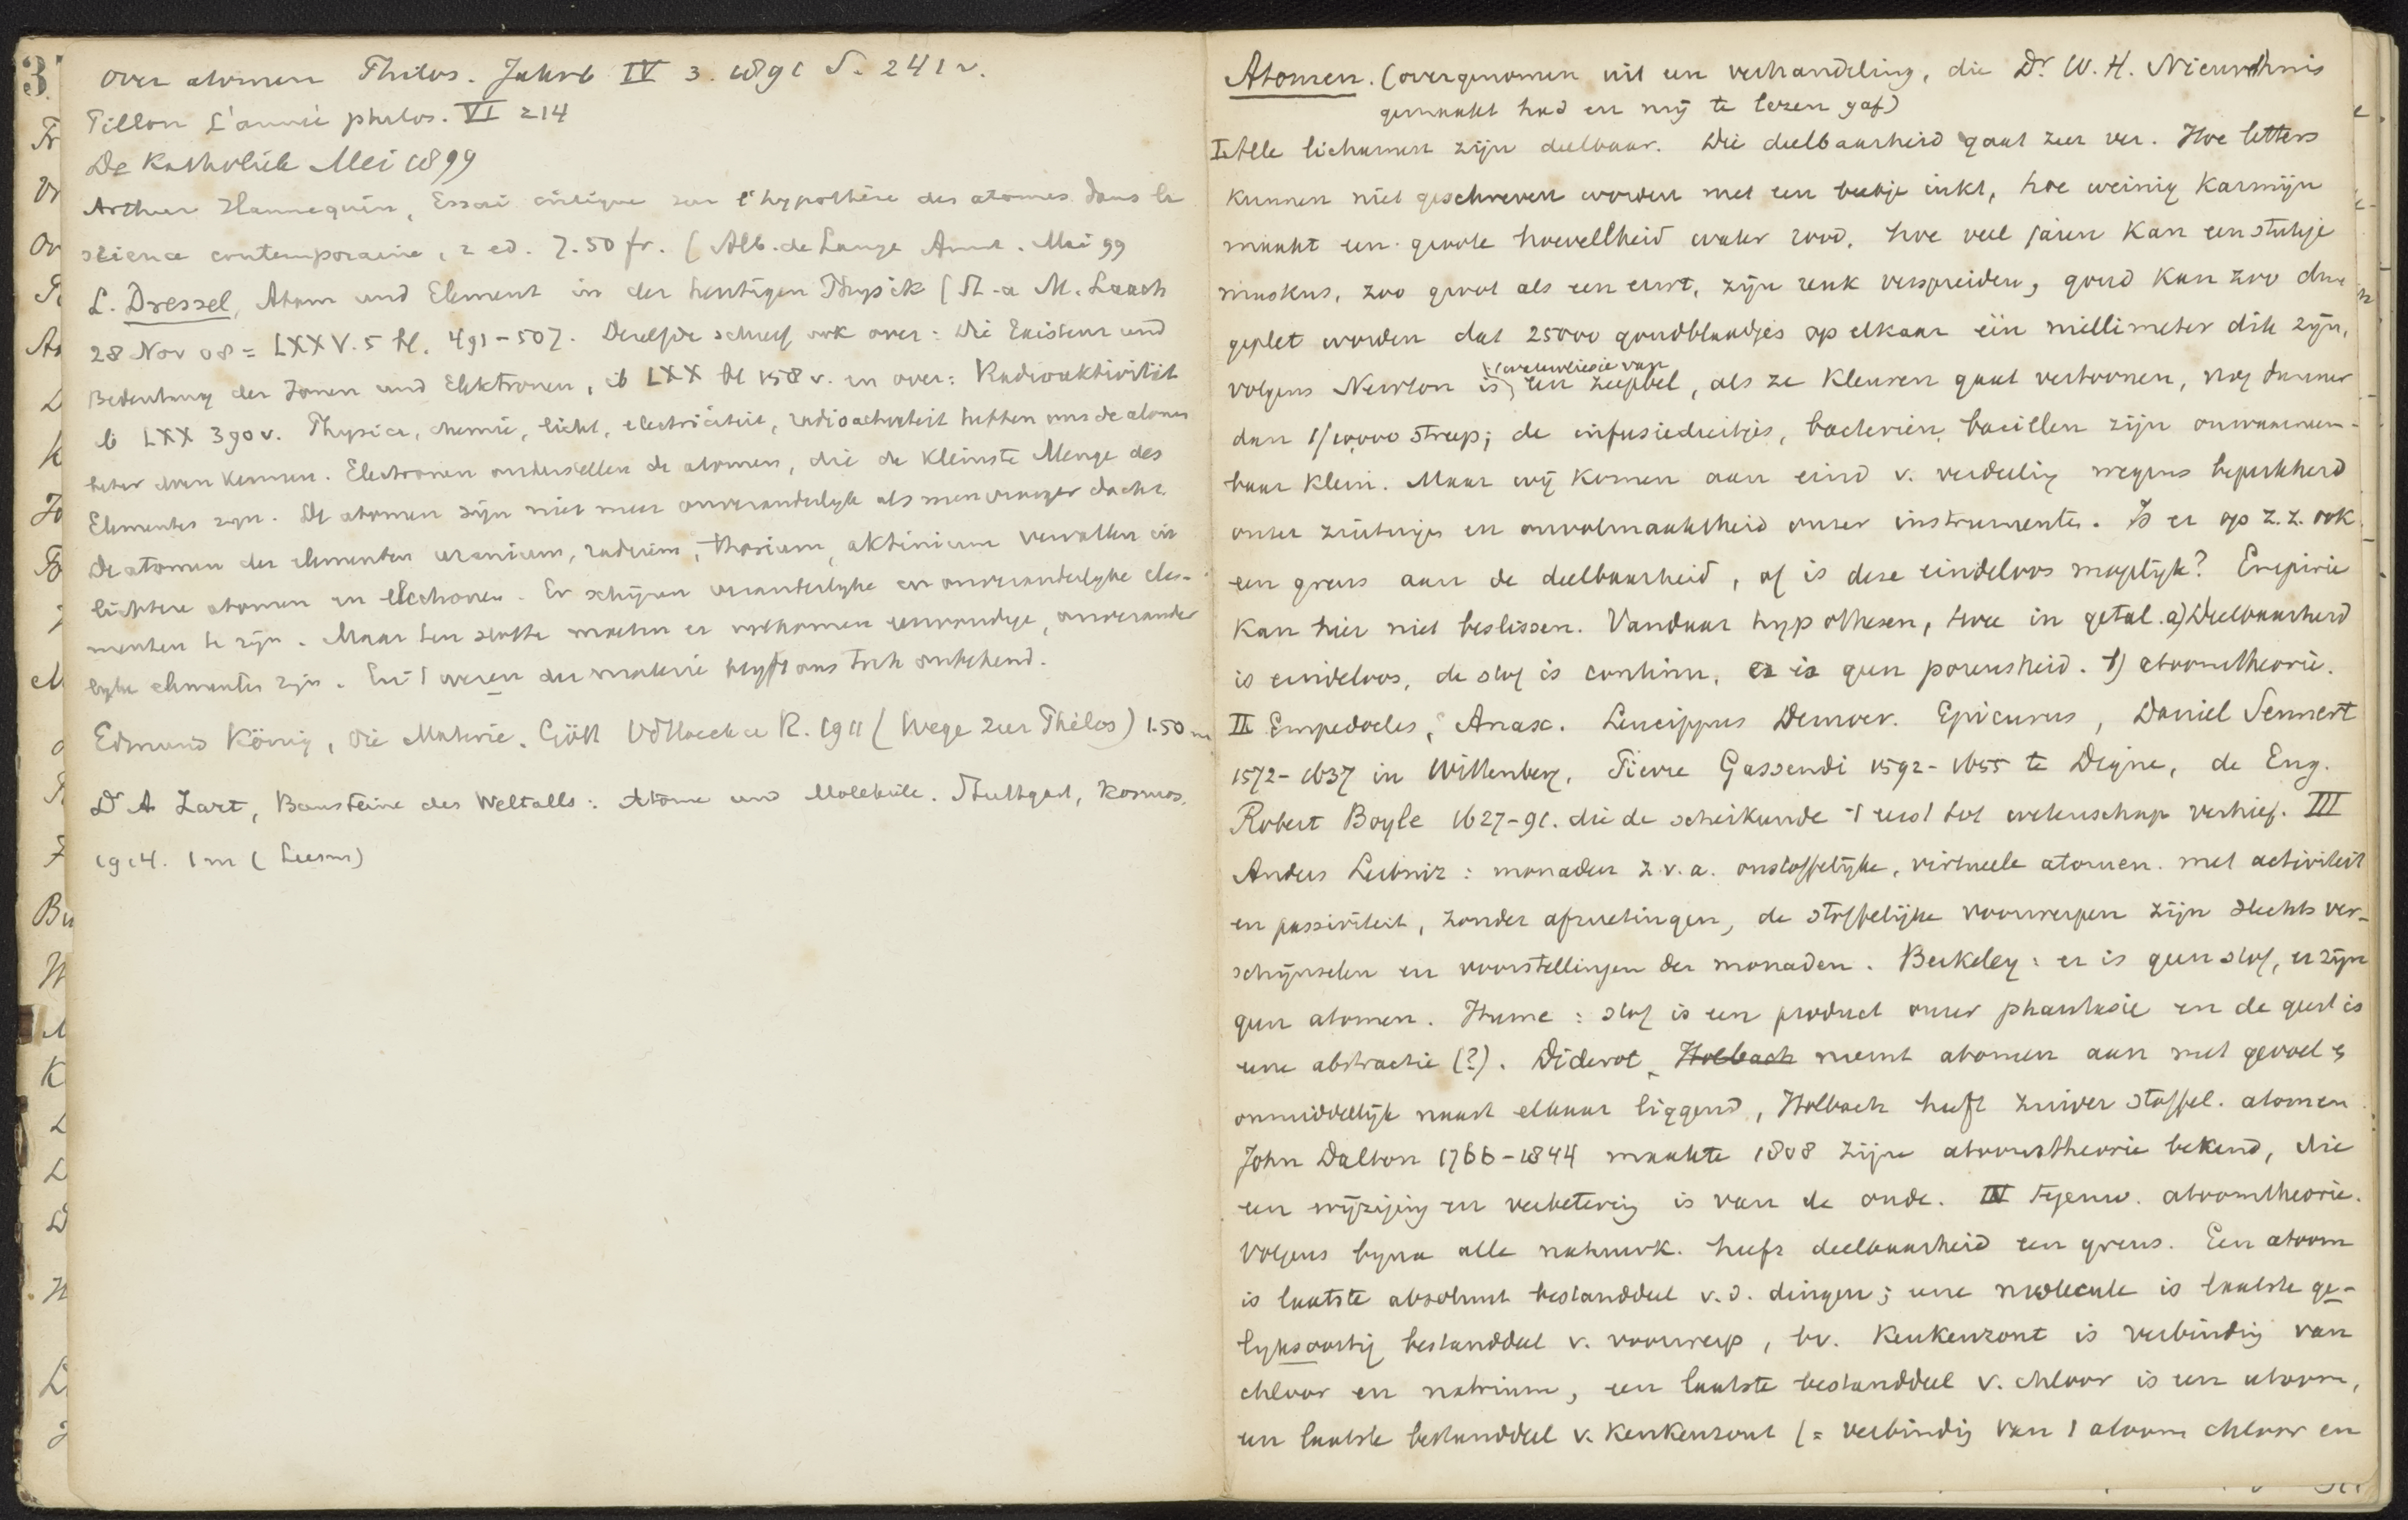 over atomen Philos. Jahrb IV 3. 1891 S. 241 v.
Pillon L'année philos. VI 214
De Katholiek Mei 1899
Arthur Hannequin, Essai critique sur l'hypothèse des atomes dans la
science contemporaine, 2 ed. 7.50 fr. (Alb. de Lange Amst. Mei 99
L. Dressel, Atom und Element in der heutigen Physik (St. a M. Laach
28 Nov 08 = LXXV. 5 bl. 491-507. Dezelfde schreef ook over: Die Existenz und
Bedeutung der Ionen und Elektronen, ib LXX bl 158 v. en over: Radioaktivität
ib LXX 390 v. Physica, chemie, licht, electriciteit, radioactiviteit hebben ons de atomen
beter doen kennen. Electronen onderstellen de atomen, die de kleinste Menge des
Elementes zijn. De atomen zijn niet meer onveranderlyk als men vroeger dacht.
De atomen der elementen uranium, radium, thorium, aktinium vervallen in
lichtere atomen en electronen. Er schijnen veranderlyke en onveranderlyke ele-
menten te zijn. Maar ten slotte moeten er volkomen eenvoudige, onverander
lyke elementen zijn. En 't wezen der materie blyft ons toch onbekend.
Edmund König, die Materie. Gött Vdhoeck u R. 1911 (Wege zur Philos) 1.50 m
Dr A Zart, Bausteine des Weltalls: Atome und Moleküle. Stuttgart, Kosmos.
1914. 1 m (Leesm)
3
Atomen. (overgenomen uit een verhandeling, die Dr. W. H. Nieuwhuis
gemaakt had en mij te lezen gaf)
I. Alle lichamen zijn deelbaar. Die deelbaarheid gaat zeer ver. Hoe letters
kunnen niet geschreven worden met een beetje inkt, hoe weinig karmijn
maakt een groote hoevellheid water rood, hoe veel jaren kan een stukje
muskus, zoo groot als een erwt, zijn reuk verspreiden, goud kan zoo dun
geplet worden dat 25000 goudblaadjes op elkaar één millimeter dik zijn,
volgens Newton is een zeepbel, als ze kleuren gaat vertoonen, nog dunner
dan 1/10000 streep; de infusiediertjes, bacteriën, bacillen zijn onwaarneem-
baar klein. Maar wij komen aan eind v. verdeeling wegens beperktheid
onzer zintuigen en onvolmaaktheid onzer instrumenten. Is er op z. z. ook
een grens aan de deelbaarheid, of is deze eindeloos mogelijk? Empirie
kan hier niet beslissen. Vandaar hypothesen, twee in getal. a) Deelbaarheid
is eindeloos, de stof is continu, er is geen poreusheid. b) atoomtheorie.
II Empedocles, Anax. Leucippus Democr. Epicurus, Daniel Sennert
1572-1637 in Wittenberg, Pierre Gassendi 1592-1655 te Digne, de Eng.
Robert Boyle 1627-91. die de scheikunde 't eerst tot wetenschap verhief. III
Anders Leibniz: monaden z.v.a. onstoffelijke, virtueele atomen. met activiteit
en passiviteit, zonder afmetingen, de stoffelijke voorwerpen zijn slechts ver-
schijnselen en voorstellingen der monaden. Berkeley: er is geen stof, er zijn
geen atomen. Hume: stof is een product onzer phantasie en de geest is
eene abstractie (?). Diderot, Holbach neemt atomen aan met gevoel &
onmiddellijk naast elkaar liggend, Holbach heeft zuiver stoffel. atomen.
John Dalton 1766-1844 maakte 1808 zijne atoomtheorie bekend, die
een wijziging en verbetering is van de oude. IV Tegenw. atoomtheorie.
Volgens byna alle natuurk. heeft deelbaarheid een grens. Een atoom
is laatste absoluut bestanddeel v. d. dingen; eene molecule is laatste ge-
lyksoortig bestanddeel v. voorwerp, bv. keukenzout is verbinding van
chloor en natrium, een laatste bestanddeel v. chloor is een atoom,
een laatste bestanddeel v. keukenzout (= verbinding van 1 atoom chloor en